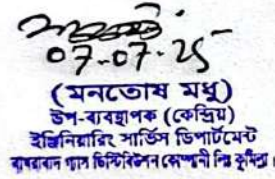 ০৭-০৭-২৫
(মনতোষ মধু)
উপ-ব্যবস্থাপক (কেন্দ্রিয়)
ইঞ্জিনিয়ারিং সার্ভিস ডিপার্টমেন্ট
বাখরাবাদ গ্যাস ডিস্ট্রিবিউশন কোম্পানী লিঃ কুমিল্লা।